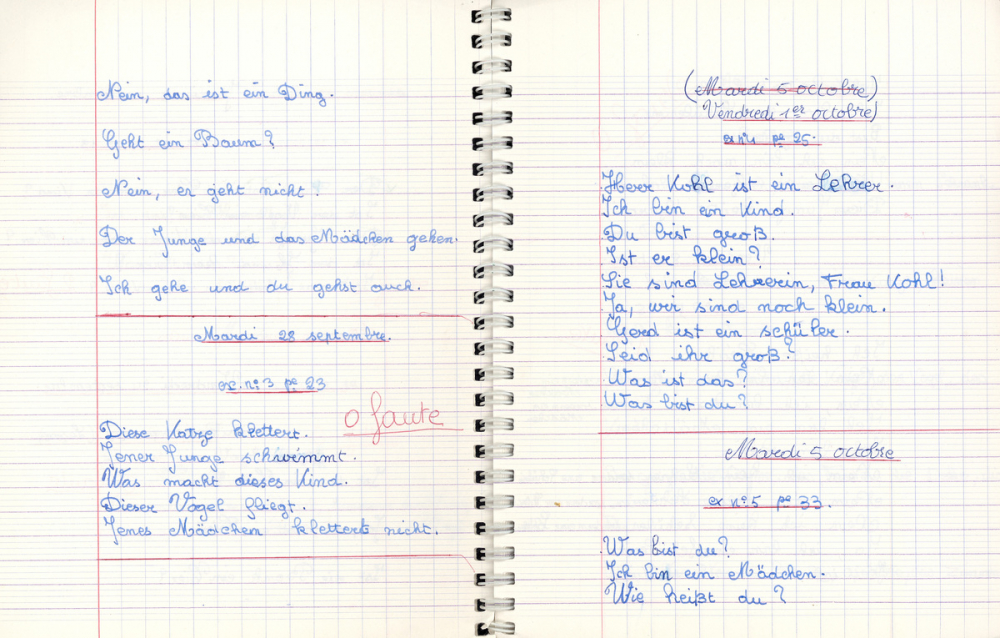 Nein, das ist ein Ding.
Geht ein Baum?
Nein, er geht nicht.
Der Junge und das Mädchen gehen.
Ich gehe und du gehst auch.
Mardi 28 septembre.
ex. n° 3 pe 23
0 faute
Diese Katze klettert.
Jener Junge schwimmt.
Was macht dieses Kind.
Dieser Vogel fliegt.
Jenes Mädchen klettert nicht.
(Mardi 5 octobre)
Vendredi 1er octobre)
ex n° 1 pe 25.
Herr Kohl ist ein Lehrer.
Ich bin ein Kind.
Du bist groß.
Ist er klein?
Sie sind Lehrerin, Frau Kohl!
Ja, wir sind noch klein.
Gerd ist ein schüler.
Seid ihr groß?
Was ist das?
Was bist du?
Mardi 5 octobre
ex n° 5 pe 33.
Was bist du?
Ich bin ein Mädchen.
Wie heißt du?